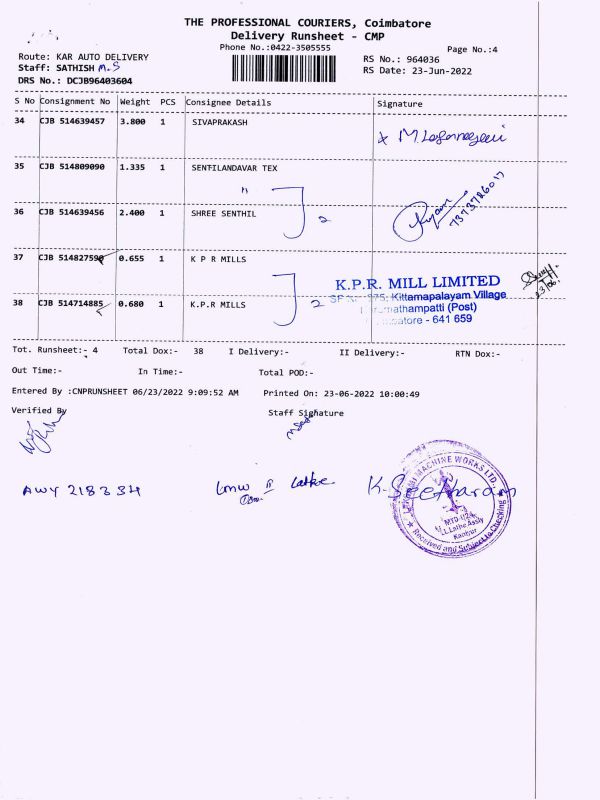 THE PROFESSIONAL COURIERS, Coimbatore
Delivery Runsheet - CMP
Phone No.:0422-3505555
Page No.:4
Route: KAR AUTO DELIVERY
RS No.: 964036
Staff: SATHISH M.S
RS Date: 23-Jun-2022
DRS No.: DCJB96403604
S No Consignment No Weight PCS Consignee Details Signature
34 CJB 514639457 3.800 1 SIVAPRAKASH
35 CJB 514809090 1.335 1 SENTILANDAVAR TEX
36 CJB 514639456 2.400 1 SHREE SENTHIL 2
7373786017
37 CJB 514827590 0.655 1 K P R MILLS
K.P.R. MILL LIMITED
Kittamapalayam Village
38 CJB 514714885 0.680 1 K.P.R MILLS 2
(Post)
- 641 659
Tot. Runsheet:- 4 Total Dox:- 38 I Delivery:- II Delivery:- RTN Dox:-
Out Time:- In Time:- Total POD:-
Entered By :CNPRUNSHEET 06/23/2022 9:09:52 AM Printed On: 23-06-2022 10:00:49
Verified By Staff Signature
AWY 218334 Lmw Lathe K. Seetharam
MACHINE WORKS LTD.
LL.Lathe Assly
Kaniyur
Received and Subject to Checking